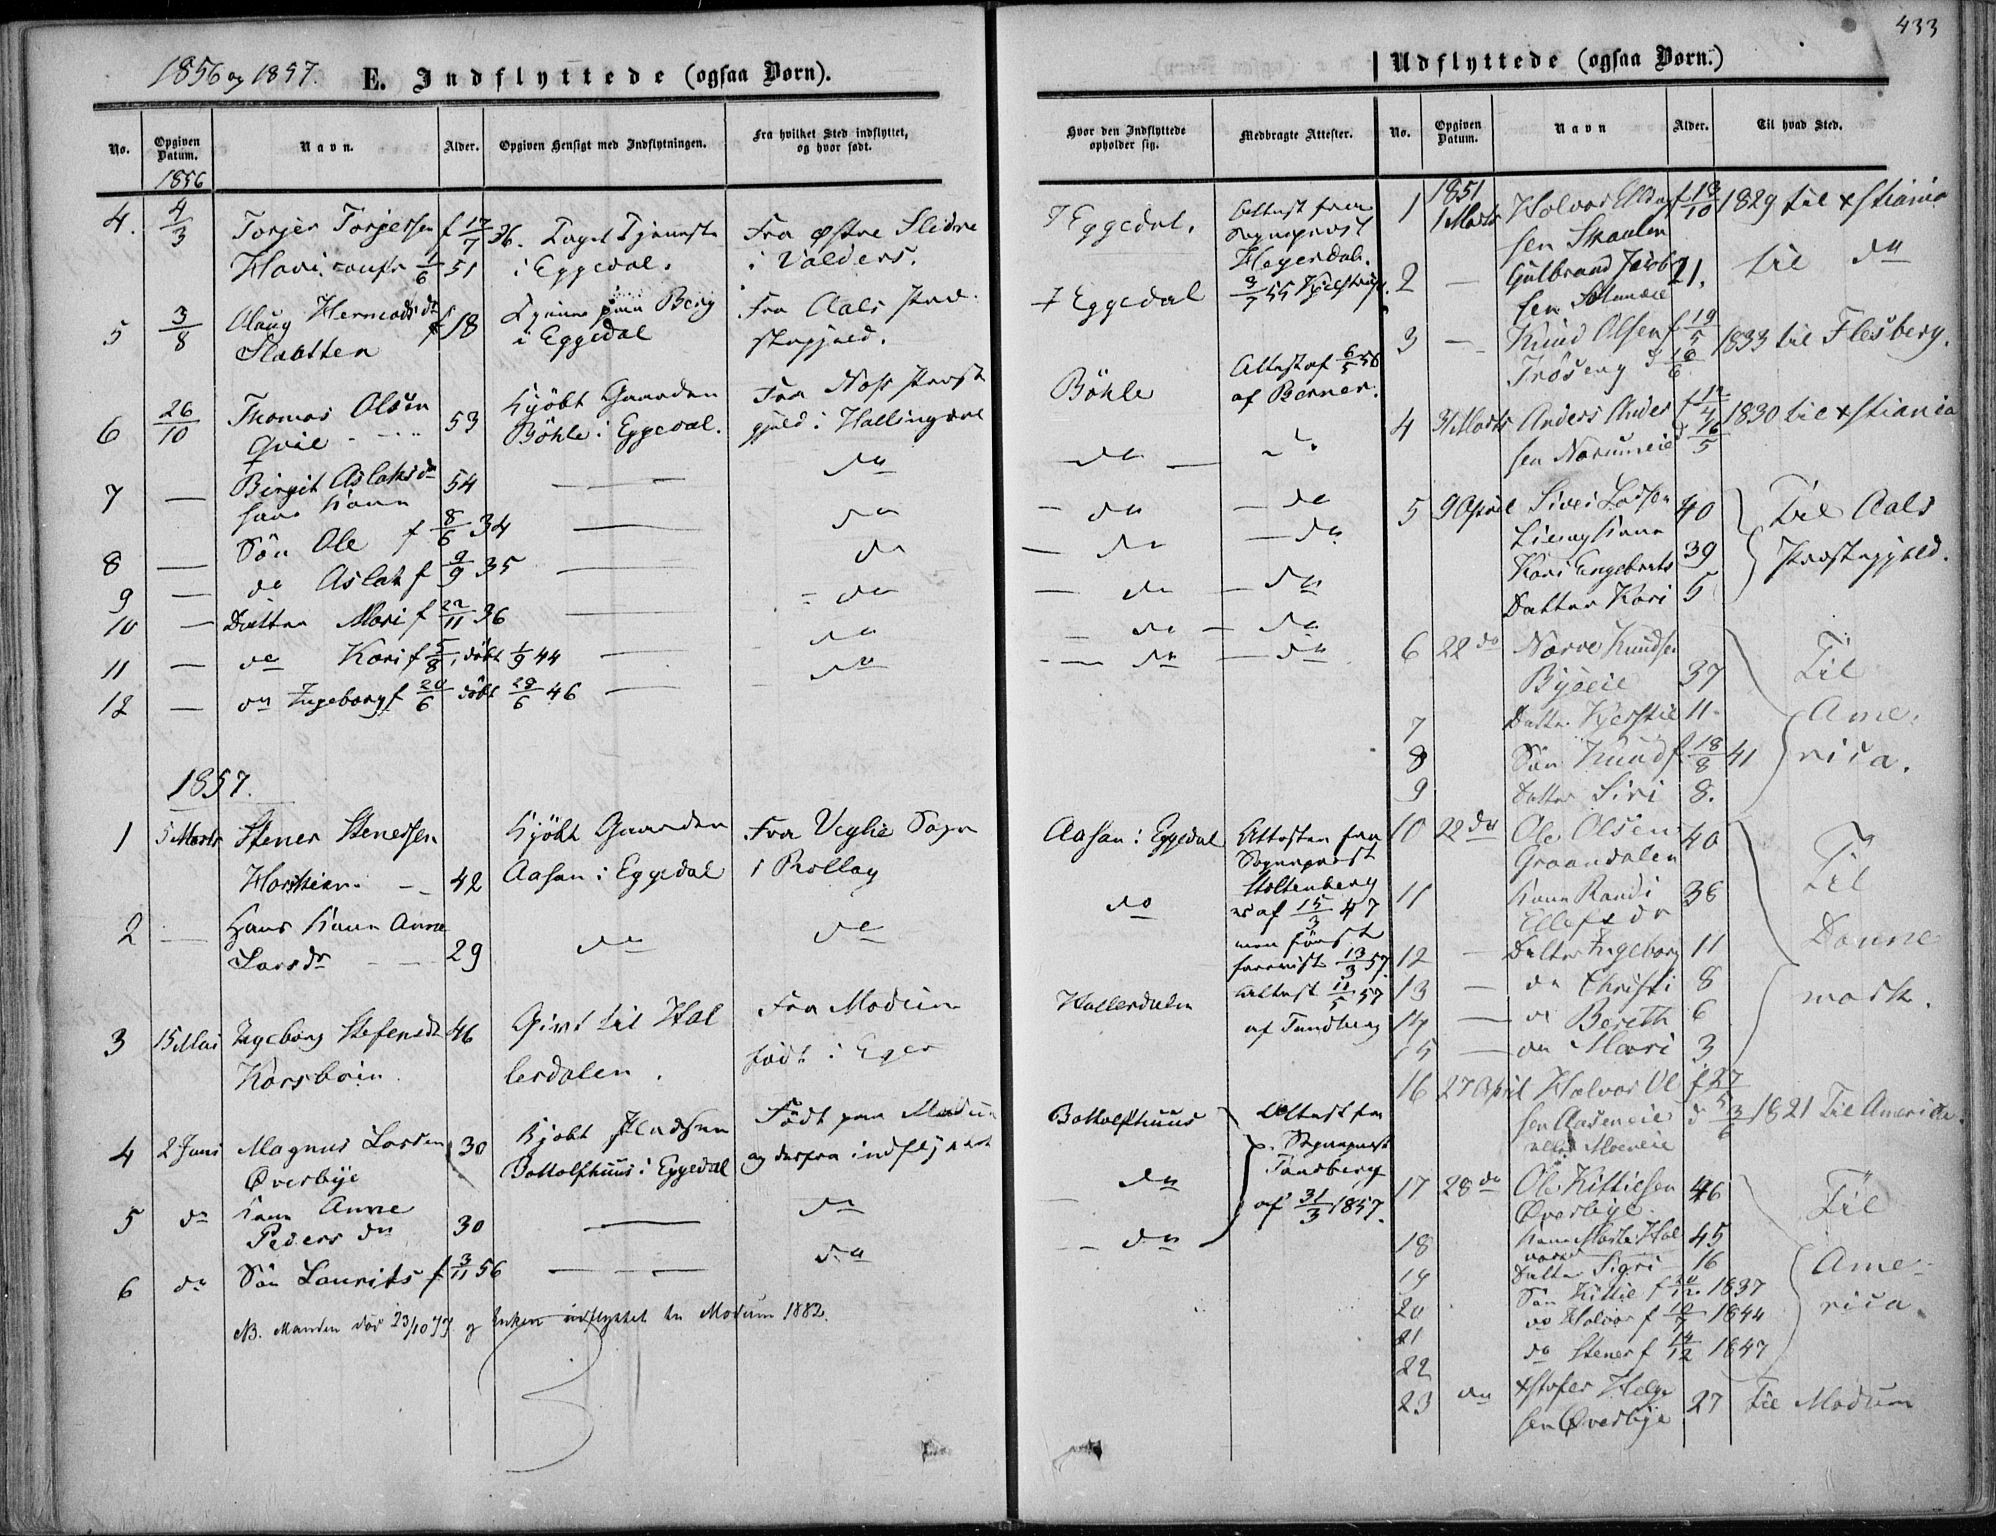 1856 og 1857. E. Indflyttede (ogsaa Børn).
No. Opgiven Datum. Navn. Alder. Opgiven Hensigt med Indflytningen. Fra hvilket Sted indflyttet, og hvor født.
1856
4. 4/3 Torjer Torjersen f 17/7 36. Taget Tjeneste Fra Østre Slidre
1/6 51 i Eggedal. i Valders.
5 3/8 Olaug Hermodsdr f 18 paa Berg Fra Aals Præ-
i Eggedal stegjeld.
6 26/10 Thomas Olsen 53 Kjöbt Gaarden Fra Næss Præst
Qvie Böhle i Eggedal. gjeld i Hallingdal
7 — Birgit Aslaksdr 54 — do
hans Kone
8 — Sön Ole f 8/6 34 — do
9 — do Aslak f 9/9 35 — do
10 — Datter Mari f 22/11 36 — do
11 — do Kari f 5/8, döbt 1/9 44 — do
12 — do Ingeborg f 20/6 döbt 28/6 46 — do
1857.
1 5 Marts Stener Stenersen Kjöbt Gaarden Fra Veglie Sogn
42 Aasan i Eggedal i Rollag
2 — Hans Kone Anne
Larsdr 29 do do
3 15 Mai Ingeborg Stefensdr 46 Givt til Hal Fra Modum
lerdalen. födt i Eger
4 2 Juni Magnus Larsen 30 Kjobt Födt paa Modum
Øverbye Bottolfhuus i Eggedal og derfra indflyttet
5 do Kone Anne
Pedersdr 30 — do
6 do Sön Laurits f 3/11 56 — do
NB. Manden död 23/10 77 og Enken udflyttet til Modum 1882.
433
Udflyttede (ogsaa Børn.)
Hvor den Indflyttede opholder sig. Medbragte Attester. No. Opgiven Datum. Navn Alder. Til hvad Sted.
1851
I Eggedal. Attest fra 1 1 Marts Halvor f 13/10 1829 til Xstiania
Sogneprest
I Eggedal 2 — Gulbrand Jacob 21. til do
sen
3 — Knud Olsen f 19/5 1833 til Flesberg.
Böhle Attest af 6/5 56 16/6
af Berner.
do 4 31 Marts Anders Ander f 12/4 1830 til Xstiania
sen 16/5
do do 5 9 April Siver Larsen 40 Til Aals
do do Kone
do do Kari Engebrets 39 Præstegjeld.
do do Datter Kari 5
do do 6 22 do Narve Knudsen Til
37
7 Datter Kjerstie 11. Ame-
8 Sön Knud f 18/8 41 rica.
9 Datter Siri 8.
Aasan i Eggedal Attester fra 10 22 do Ole Olsen 40 Til
Sogneprest Graandalen
do Stoltenberg 11 Kone Randi 38
af 15/3 47 Ellefsdr
12 — Datter Ingeborg 11 Danne
13/3 57.
Hallerdalen Attest 11/5 57 13 — do Christi 8 mark.
af Tandberg 14 — do Bereth 6
15 — do Mari 3
16 27 April Halvor Ol f 27/5
Bottolfhuus Attest fra sen Aaseneie d 3/6 1821 Til America.
Sogneprest
do Tandberg 17 28 do Ole Kittilsen 46 Til
af 31/3 1857. Øverbye
do 18 45
19 Datter Sigri 16 Ame-
20 Sön Kittil f 1837 rica.
21 do Halvor f 1844
22 do Stener f 14/12 1847
23 do Xstofer Helge 27 til Modum
sen Øverbye